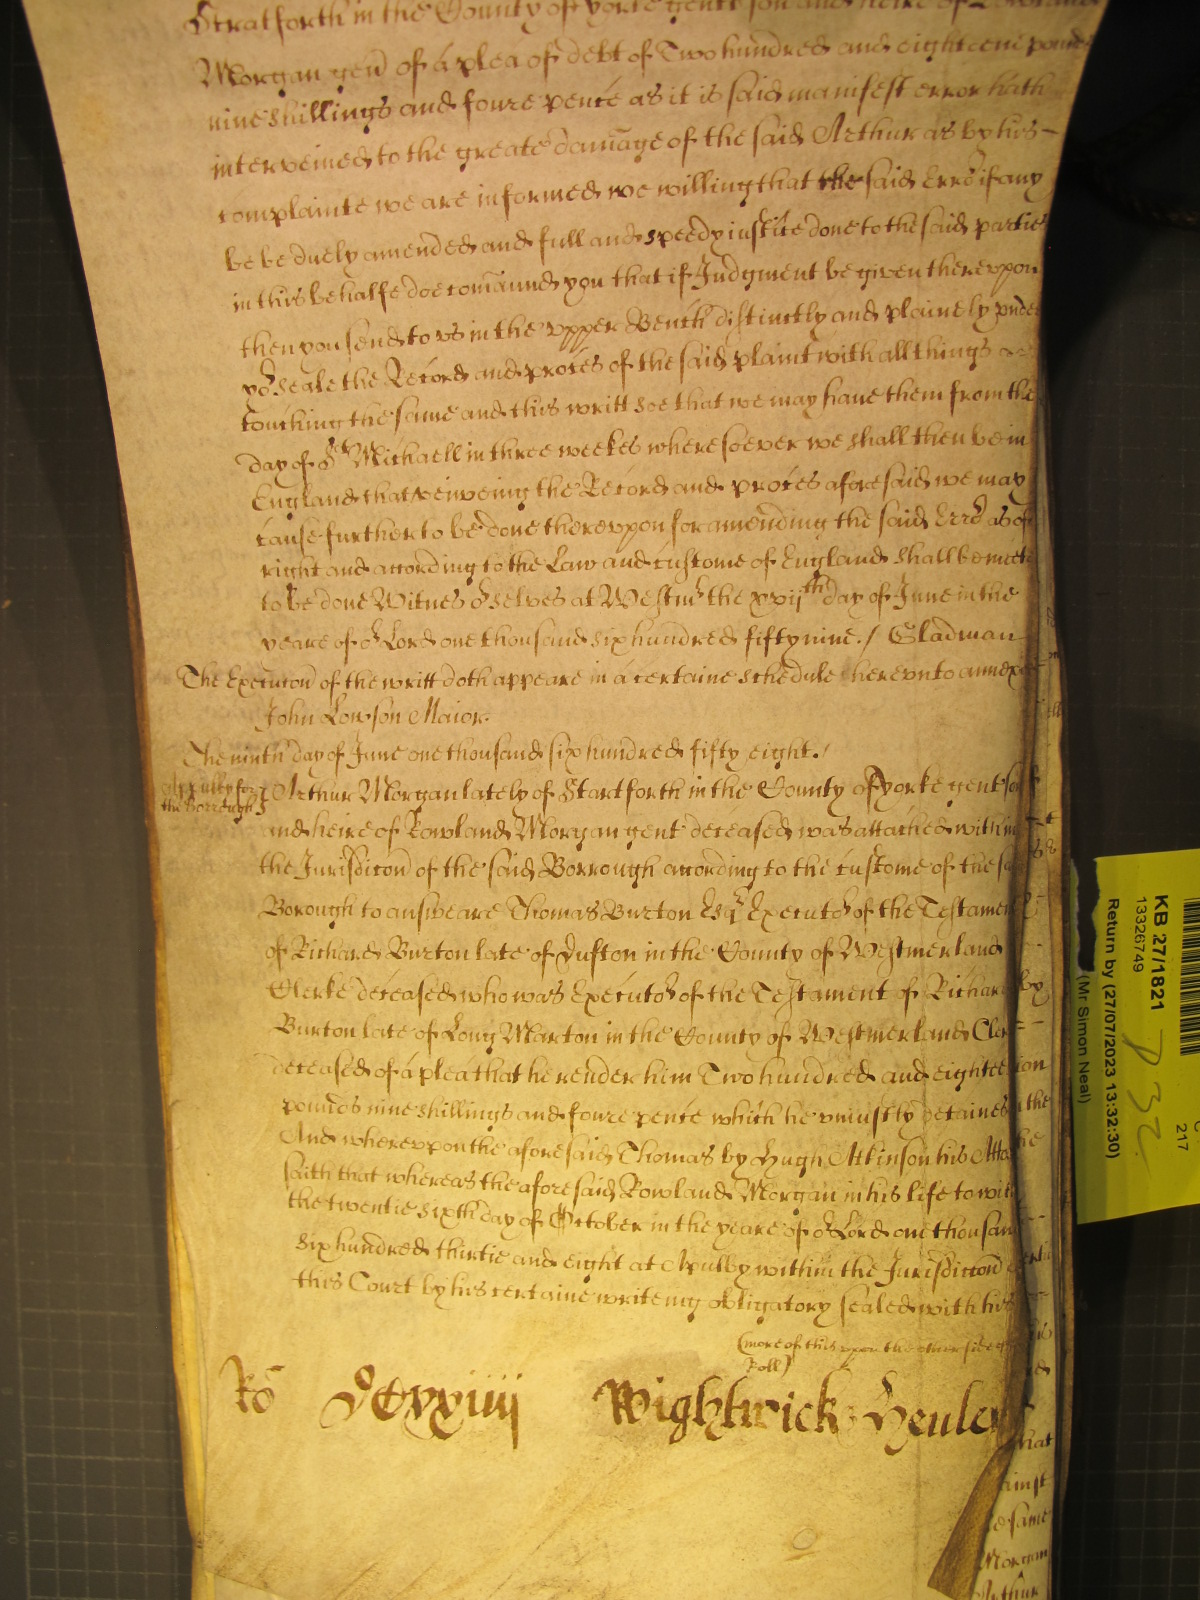 Stratforth in the County of yorke gentt son and heire of Rowland
Morgan gen͞ of a plea of debt of Two hundred and eighteene pounds
nine shillings and foure pence as it is said manifest error hath
interveined to the greate dam̄age of the said Arthur as by his
complainte we are informed we willing that the said Erro^r if any
be be duely amended and full and speedy iustice done to the said parties
in this behalfe doe com̄aund you that if Judgment be given therevpon
then you send to vs in the vpper Bench distinctly and plainely vnder
yo^r seale the Record and proces of the said plaint with all things
touching the same and this writt soe that we may haue them from the
day of S^t Michaell in three weekes wheresoever we shall then be in
England that veiweing the Record and proces aforesaid we may
cause further to be done therevpon for amending the said Erro^r as of
right and according to the Law and custome of England shall be meete
to be done Witnes o^r selves at Westm^r the xvij^th day of June in the
yeare of o^r Lord one thousand six hundred fifty nine./ Gladman
The Execucon͞ of the writt doth appeare in a certaine schedule herevnto annexed
John Lowson Maior.
The ninth day of June one thousand six hundred fifty eight./
Apulby for
the Borrough
Arthur Morgan lately of Startforth in the County of yorke gent son
and heire of Rowland Morgan gent deceased was attached within
the Jurisdicon͞ of the said Borrough according to the custome of the said
Borough to answeare Thomas Burton Esq^r Executo^r of the Testament
of Richard Burton late of Dufton in the County of Westmerland
Clerke deceased who was Executo^r of the Testament of Richard
Burton late of Long Marton in the County of Westmerland Clerke
deceased of a plea that he render him Two hundred and eighteene
pounds nine shillings and foure pence which he vniustly detaines
And wherevpon the aforesaid Thomas by Hugh Atkinson his Atto
saith that whereas the aforesaid Rowland Morgan in his life to witt
the twentie sixth day of October in the yeare of o^r Lord one thousand
six hundred thirtie and eight at Apulby within the Jurisdiccon͞ of
this Court by his certaine writeing obligatory sealed with his
(more of this vpon the other side of
Roll)
Ro DCxxiiij Wightwick : Henley
KB 27/1821
13326749
Return by (27/07/2023 13:32:30)
(Mr Simon Neal)
217